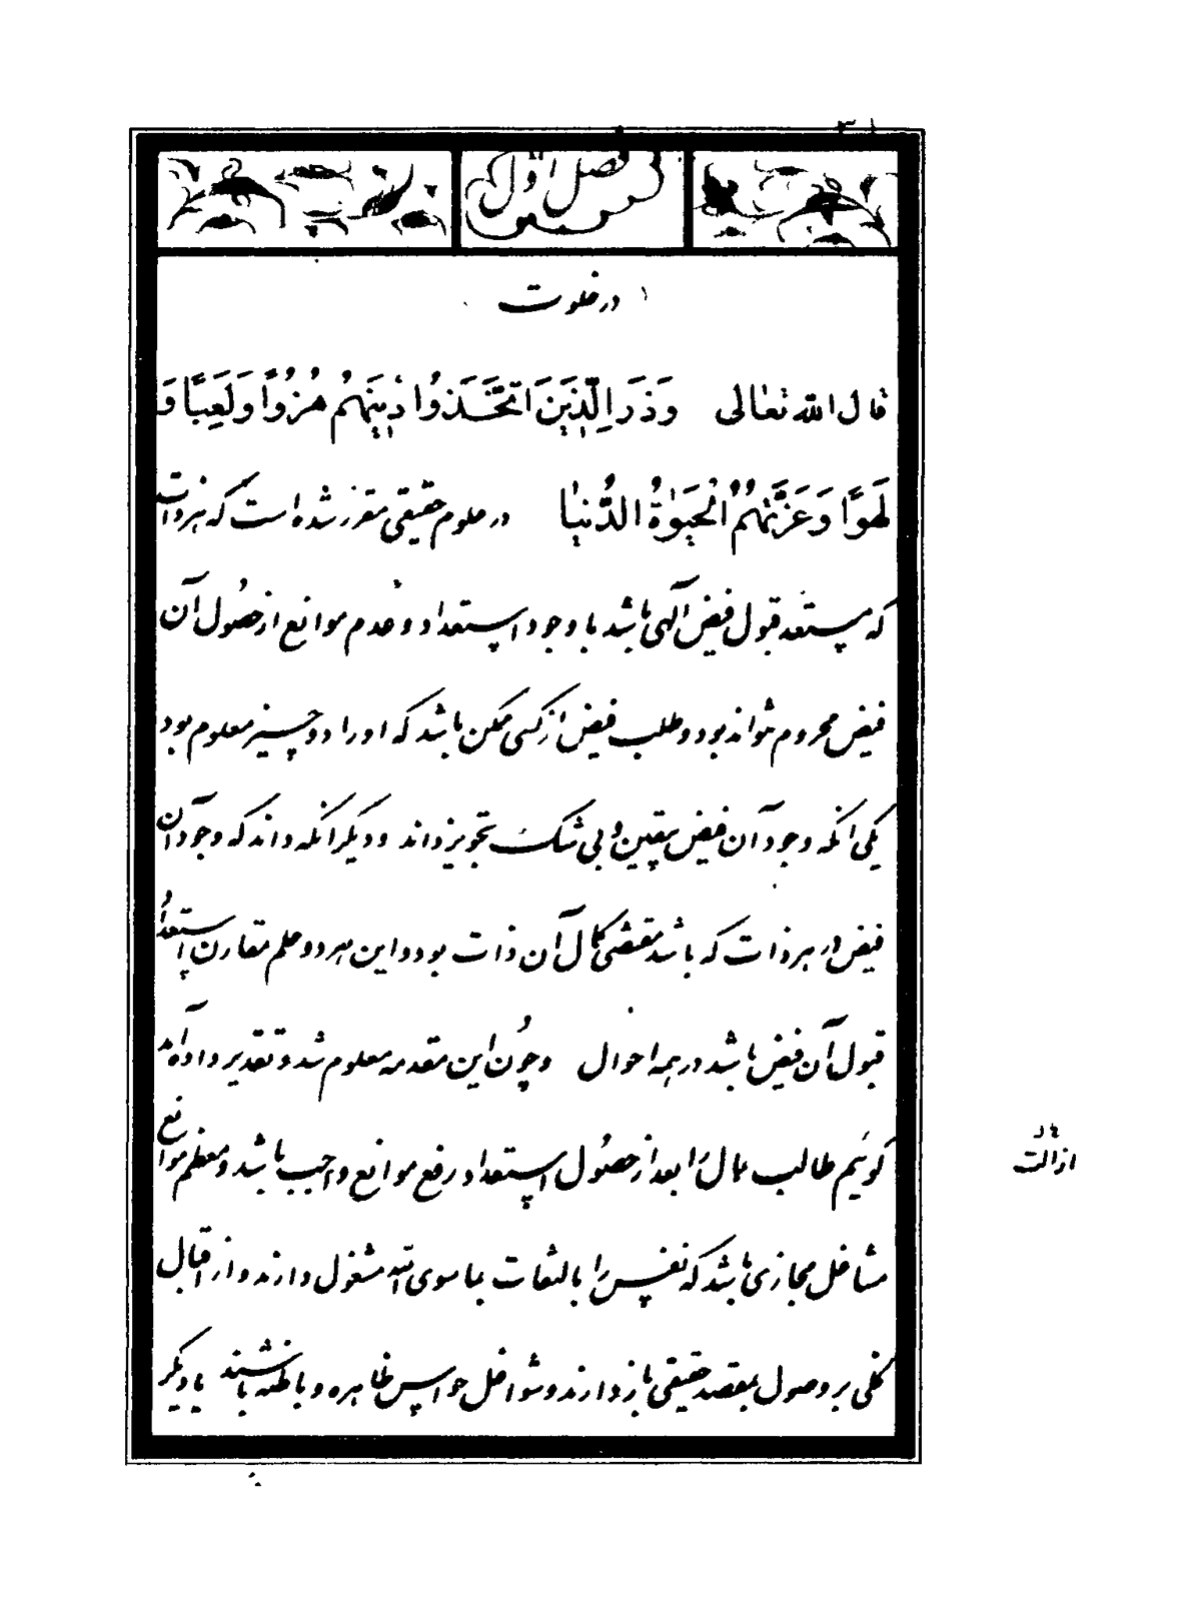 ۳۱
فصل اول
در خلوت
قال الله تعالى وَذَرِ الَّذِينَ اتَّخَذُوا دِينَهُمْ هُزُوًا وَلَعِبًا وَ
لَهْوًا وَغَرَّتْهُمُ الْحَيٰوةُ الدُّنْيَا در علوم حقیقی مقرر شده است که هر ذات
که مستعد قبول فیض الهی باشد با وجود استعداد و عدم موانع از حصول آن
فیض محروم نتواند بود و طلب فیض از کسی ممکن باشد که او را دو چیز معلوم بود
یکی آنکه وجود آن فیض بیقین و بی شک تجویز داند و دیگر آنکه داند که وجود آن
فیض در هر ذات که باشد مقتضی کمال آن ذات بود و این هر دو علم مقارن استعداد
قبول آن فیض باشد در همه احوال و چون این مقدمه معلوم شد و تقدیر داده آمد
گوئیم طالب کمال را بعد از حصول استعداد رفع موانع واجب باشد و معظم موانع
مشاغل مجازی باشد که نفس را بالتفات بما سوی الله مشغول دارند و از اقبال
کلی بر وصول بمقصد حقیقی باز دارند و شواغل حواس ظاهره و باطنه باشند یا دیگر
ازالت